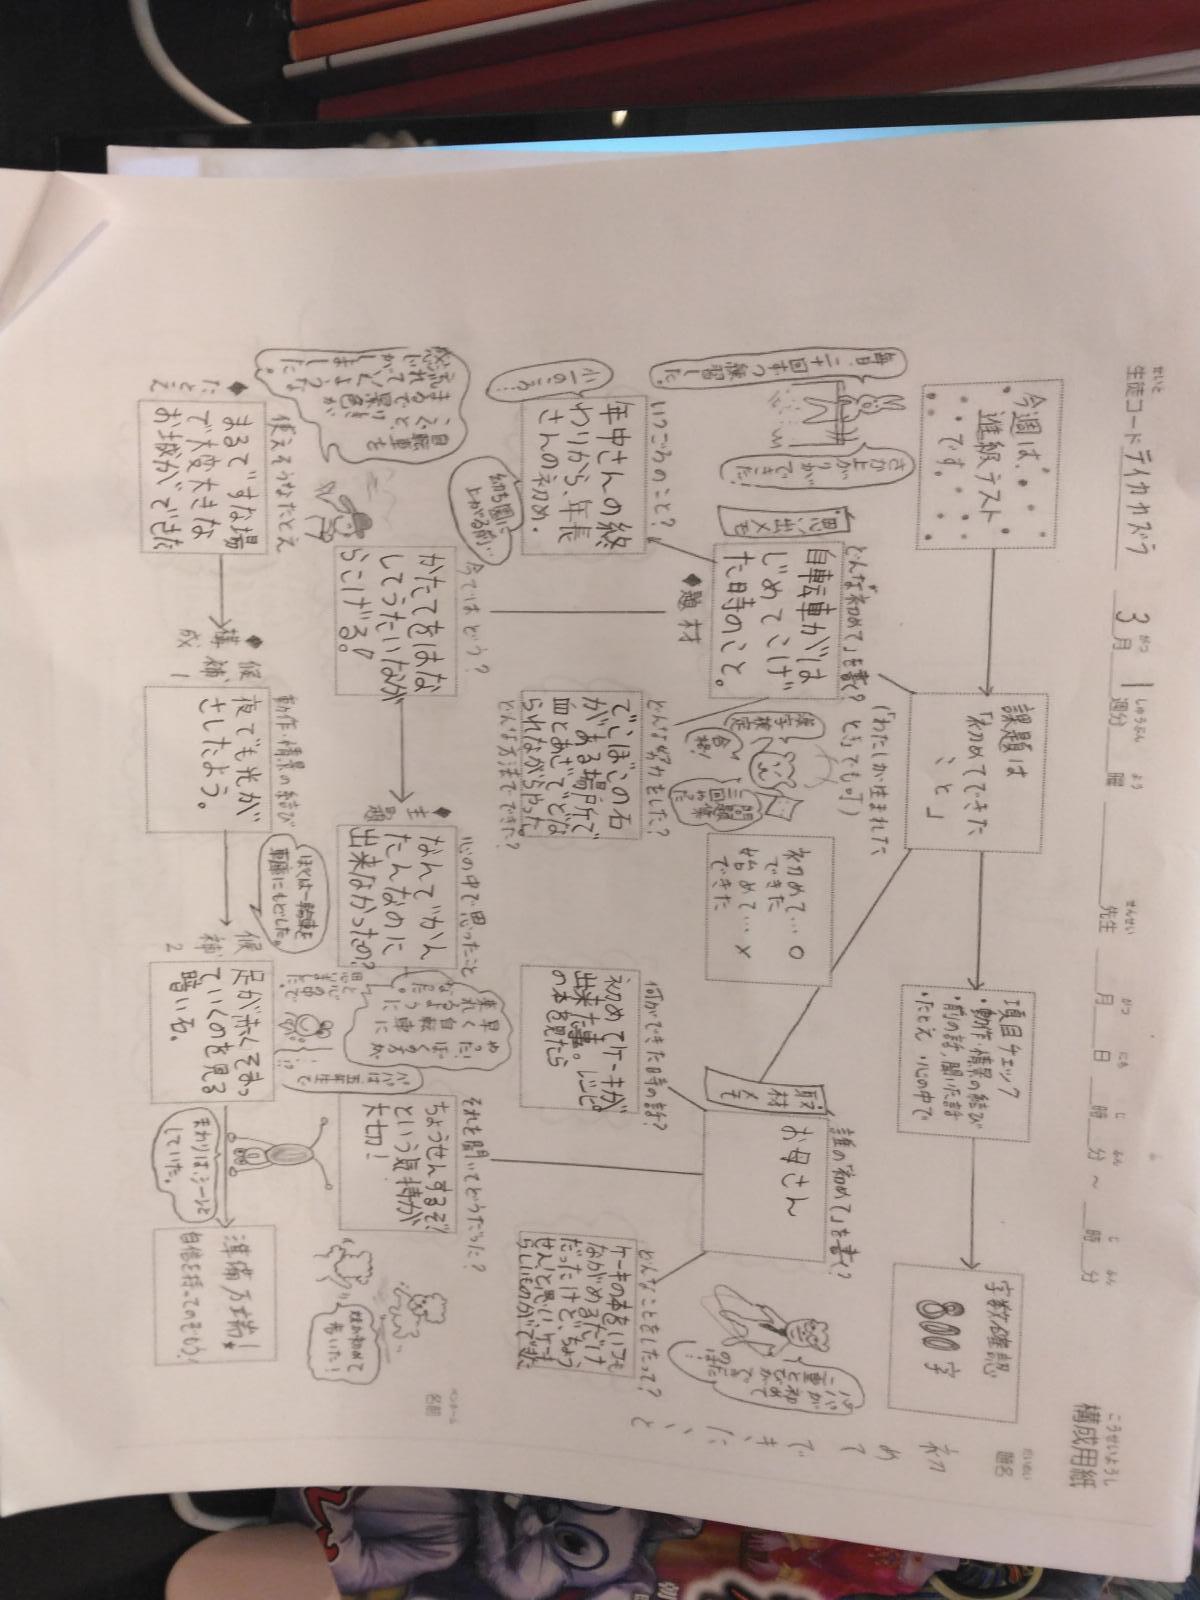 こうせいようし
構成用紙
せいと
生徒コード テイカカズラ 3月 1週分 曜 先生 月 日 時 分 ~ 時 分
だいめい
題名
初めてできたこと
ペンネーム
名前
今週は、
進級テスト
です。
課題は
「初めてできた
こと」
項目チェック
・動作・情景の結び
・前の話、聞いた話
・たとえ ・心の中で
字数確認
800字
毎日、二十回ずつ
練習した。
さか上がりが
できた!
思い出メモ
どんな「初めて」を書く?
(「わたしが生まれた
とき」でも可)
自転車がは
じめてこげ
た日時のこと。
◆題材
初めて…○
できた
始めて…×
できた
取材メモ
誰の「初めて」を書く?
お母さん
いつごろのこと?
小一のころ…
年中さんの終
わりから、年長
さんの初め。
幼ち園に
上がる前…
どんな努力をした?
でこぼこの石
がある場所で
血とあざでどな
られながらやった。
どんな方法でできた?
漢字検定
合格!
問題集
三回
やった
何ができた時の話?
初めてケーキが
出来た事。レシピ
の本を見たら
どんなことをしたって?
ケーキの本をいつも
ながめるだけ
だったけど、ちょう
せんと思い、ケーキ
らしいものができた。
パパが
二重とびを
初めて
できたのは…
今ではどう?
かたてをはな
してうたいなが
らこげる。
◆主題
心の中で思ったこと
なんでいかん
たんなのに
出来なかったの?
それを聞いてどうだった?
ちょうせんするぞ
という気持が
大切!
パパは五年生で
!?
母の初めて
書いた!
◆たとえ
使えそうなたとえ
まるですな場
で大変大きな
お城ができた
◆構成
候補1
動作・情景の結び
夜でも光が
さしたよう。
ぼくは一輪車を
車庫にもどした。
候補2
足が赤くそまっ
ていくのを見る
暗い石。
まわりはシーンと
していた。
準備万端!
自信を持ってのぞもう!